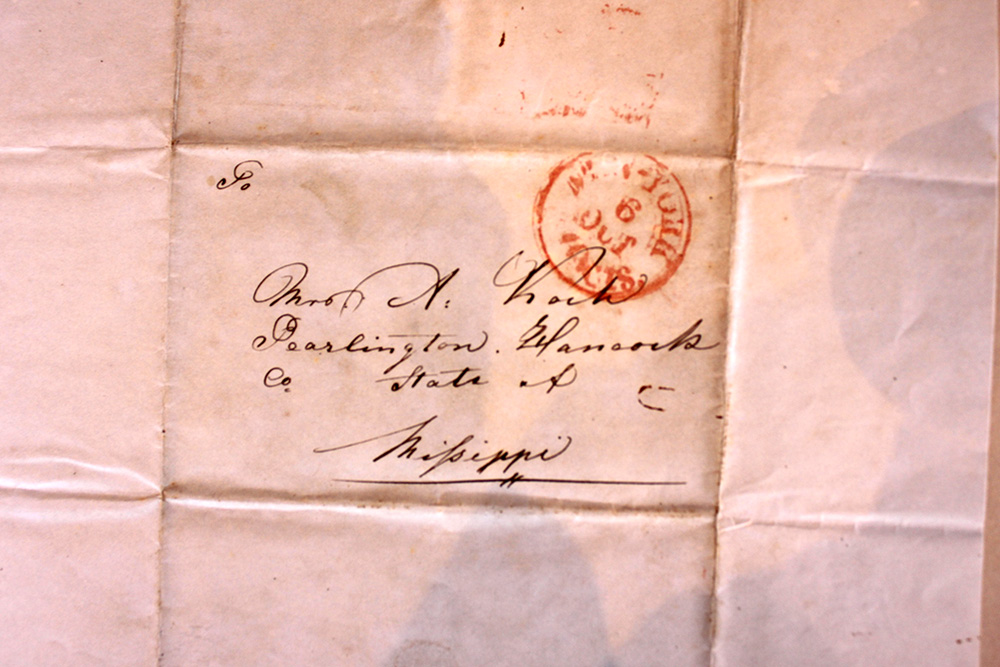 To
NEW-YORK
6
OCT
Mrs. A. Koch
Pearlington. Hancock
Co. State of
Missippi